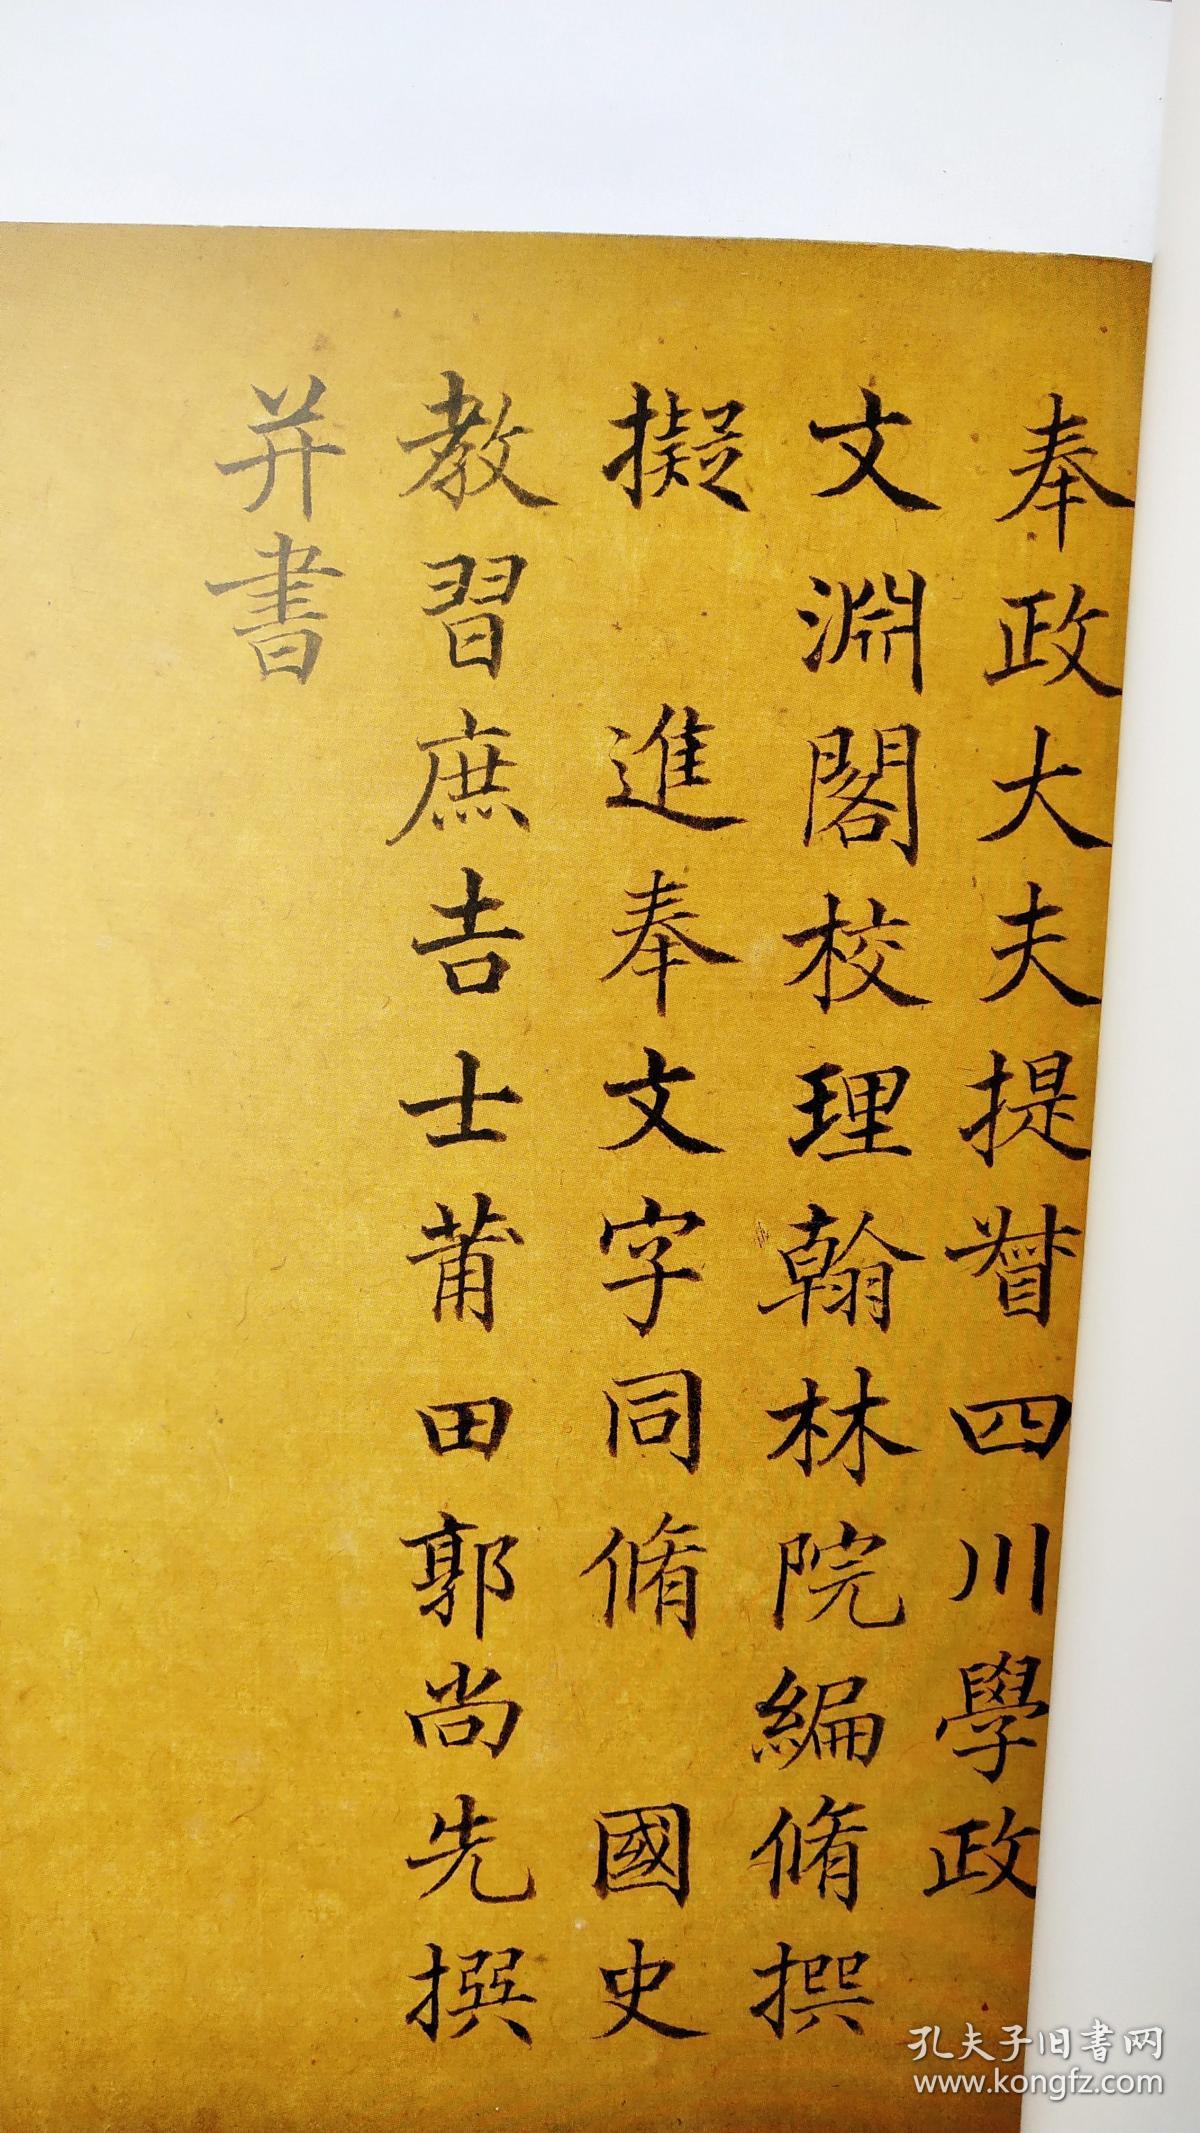 奉政大夫提督四川學政
文淵閣校理翰林院編脩撰
擬 進奉文字同脩 國史
教習庶吉士莆田郭尚先撰
并書
孔夫子旧书网
www.kongfz.com